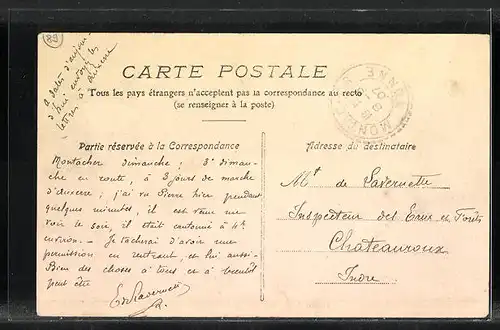 (89)
à dater d'aujour
d'hui envoyer les
lettres à Auxerre
CARTE POSTALE
Tous les pays étrangers n'acceptent pas la correspondance au recto
(se renseigner à la poste)
Partie réservée à la Correspondance
Montacher dimanche ; 3e diman-
che en route, à 3 jours de marche
d'Auxerre ; j'ai vu Pierre hier pendant
quelques minutes, il est venu me
voir le soir, il était cantonné à 4k
environ. - Je tacherai d'avoir une
permission en rentrant, et lui aussi-
Bien des choses à tous et à bientôt
peut être
Adresse du destinataire
Mr de Lavernette
Inspecteur des Eaux et Forêts
Chateauroux
Indre
YONNE